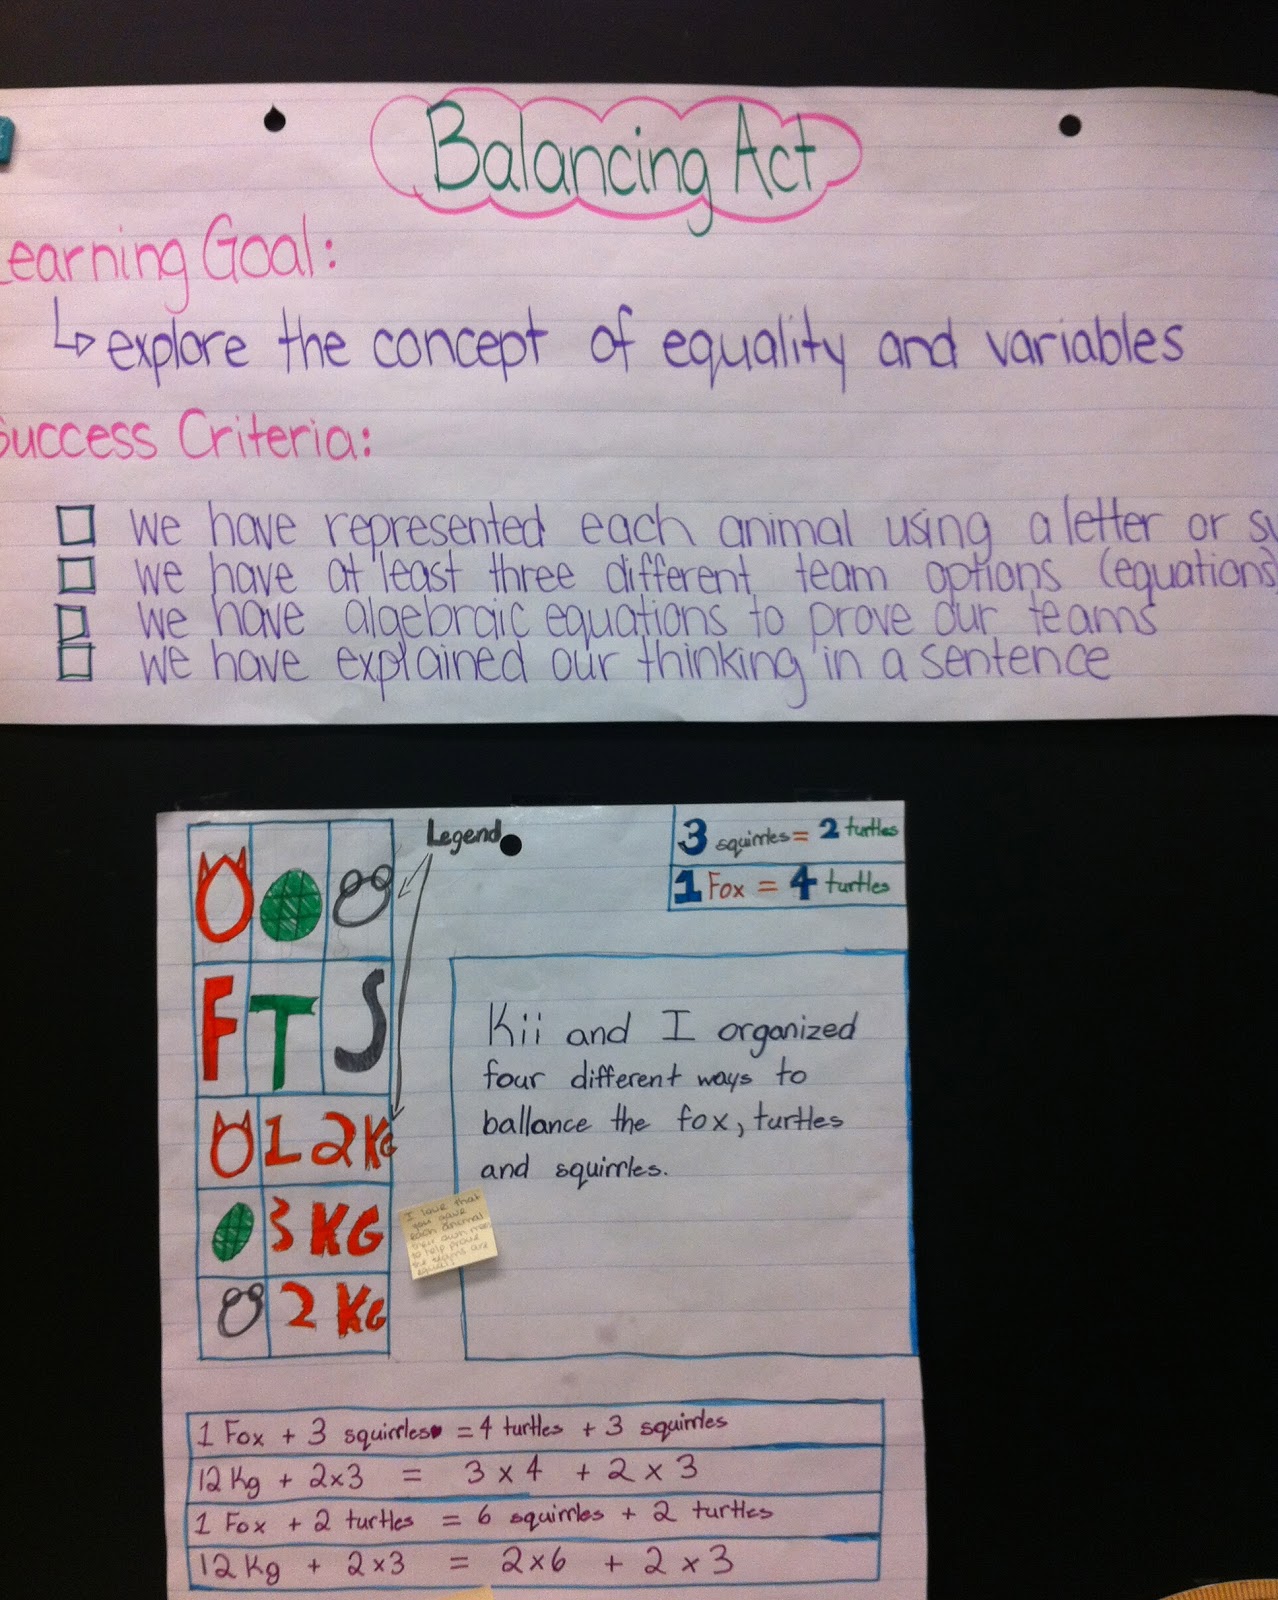 Balancing Act
Learning Goal:
explore the concept of equality and variables
Success Criteria:
we have represented each animal using a letter or
we have at least three different team options (equations)
we have algebraic equations to prove our teams
we have explained our thinking in a sentence
Legend
3 squirrles = 2 turtles
1 Fox = 4 turtles
F T S
12 KG
3 KG
2 KG
Kii and I organized
four different ways to
ballance the fox, turtles
and squirrles.
I love that
you gave
each animal
their own
to help prove
the teams are
equal
1 Fox + 3 squirrles = 4 turtles + 3 squirrles
12 Kg + 2x3 = 3 x 4 + 2 x 3
1 Fox + 2 turtles = 6 squirrles + 2 turtles
12 Kg + 2x3 = 2x6 + 2 x 3